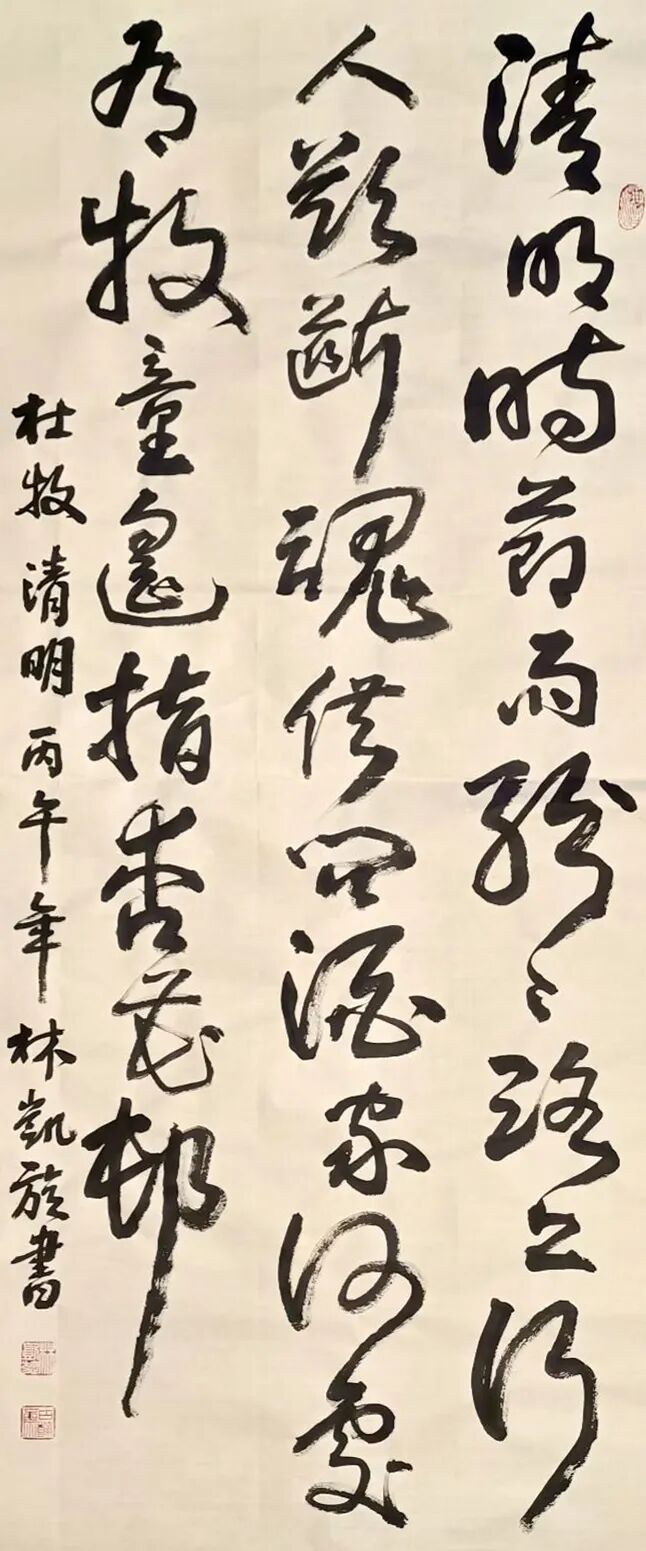 清明時節雨紛々路上行
人欲斷魂借問酒家何處
有牧童遙指杏花邨
杜牧清明丙午年林凱旋書